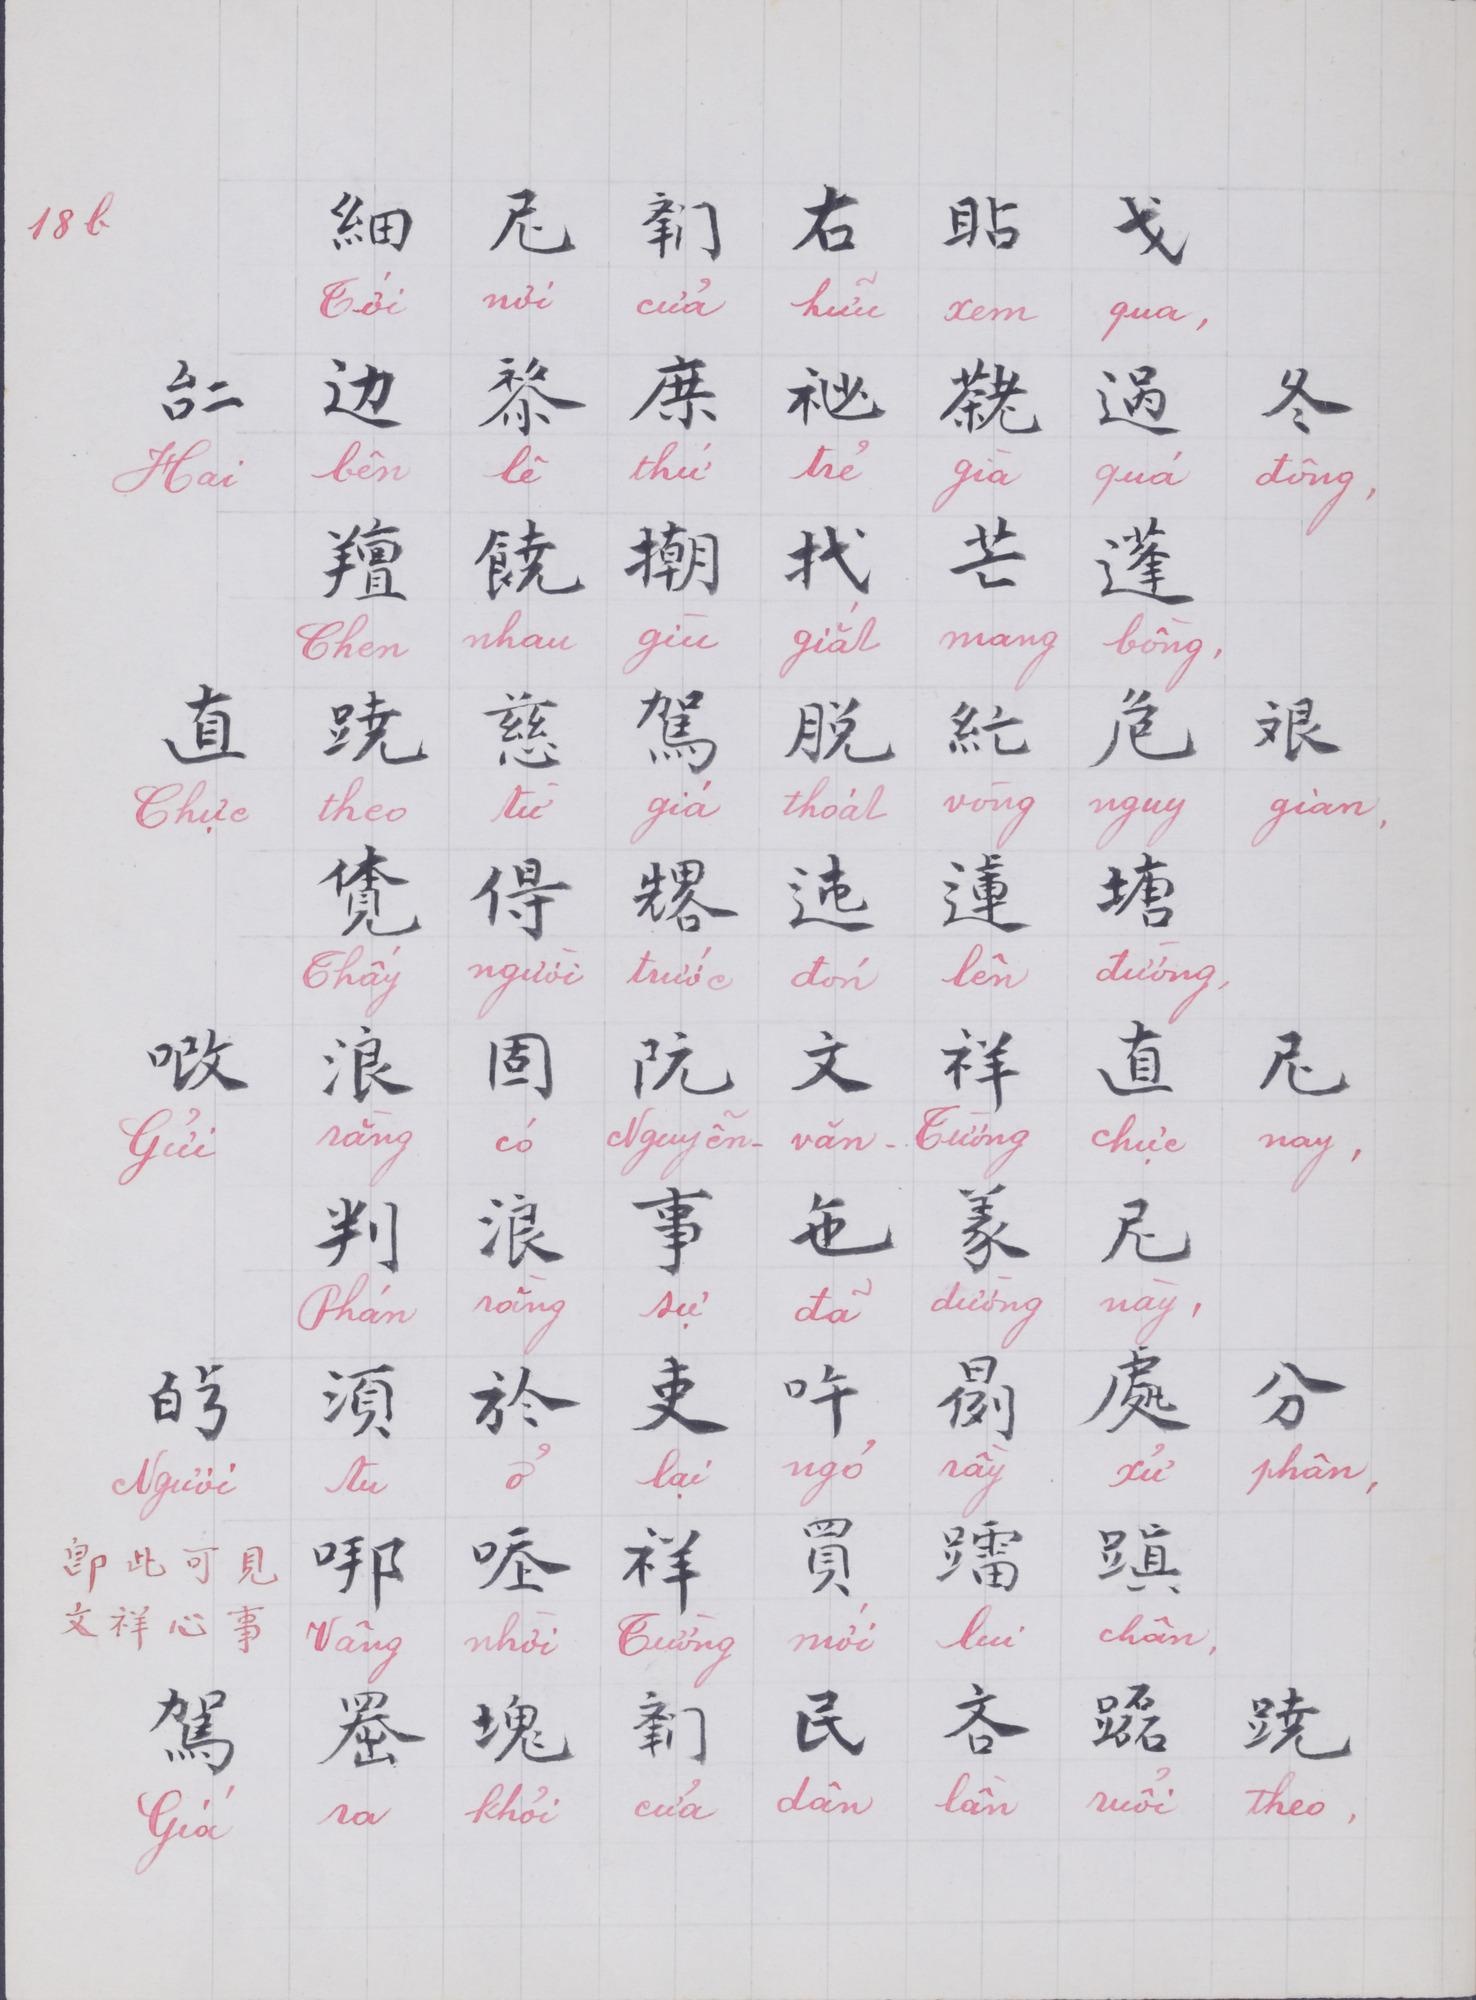 18b
細 尼 𨷯 右 䀡 戈
Tới nơi cửa hữu xem qua,
𠄩 边 黎 庶 祕 𦓅 過 冬
Hai bên lê thứ trẻ già quá đông,
羶 饒 掤 找 芒 蓬
Chen nhau gìu giắt mang bồng,
直 蹺 慈 駕 脱 紅 危 艰
Chực theo từ giá thoát vòng nguy gian,
𧡊 得 𠓀 迍 蓮 塘
Thấy người trước đón lên đường,
㗂 浪 固 阮 文 祥 直 尼
Gửi rằng có Nguyễn-văn-Tường chực nay,
判 浪 事 㐌 羕 尼
Phán rằng sự đã dường này,
𠊚 須 於 吏 吘 𣋚 處 分
Người tu ở lại ngỏ rầy xử phân,
即 此 可 見
文 祥 心 事
哪 㖡 祥 買 蹓 蹎
Vâng nhời Tường mới lui chân,
駕 𦋦 塊 𨷯 民 吝 𨇒 蹺
Giá ra khỏi cửa dân lần ruổi theo,